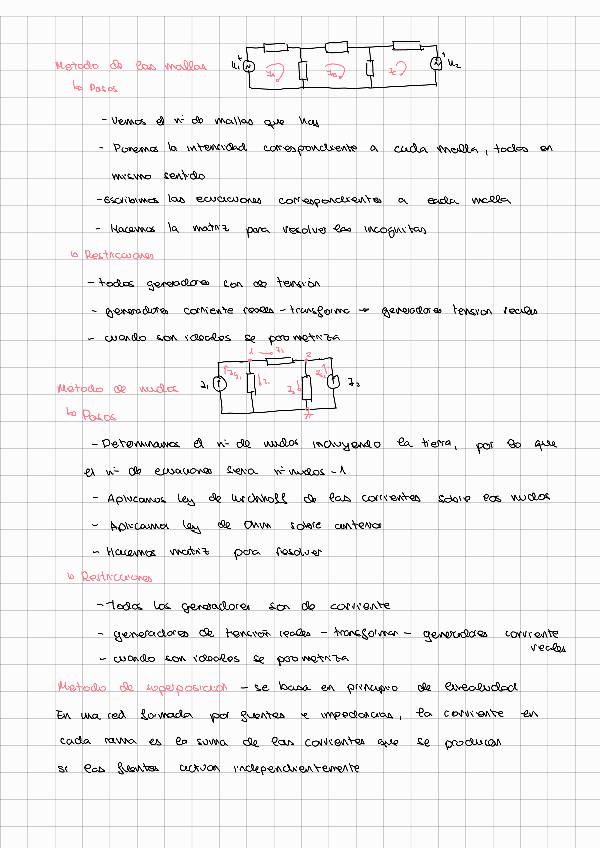 Metodo de las mallas
↳ Pasos
- Vemos el nº de mallas que hay
- Ponemos la intensidad correspondiente a cada malla, todas en
mismo sentido
- Escribimos las ecuaciones correspondientes a cada malla
- Hacemos la matriz para resolver las incognitas
↳ Restricciones
- todos generadores son de tensión
- generadores corriente reales - transforma → generadores tension reales
- cuando son ideales se parametriza
Método de nudos
↳ Pasos
- Determinamos el nº de nudos incluyendo la tierra, por lo que
el nº de ecuaciones sera nº nudos - 1
- Aplicamos ley de kirchhoff de las corrientes sobre los nudos
- Aplicamos ley de Ohm sobre anterior
- Hacemos matriz para resolver
↳ Restricciones
- Todos los generadores son de corriente
- generadores de tensión reales - transforman - generadores corriente
reales
- cuando son ideales se parametriza
Metodo de superposicion - se basa en principio de linealidad
En una red formada por fuentes e impedancias, la corriente en
cada rama es la suma de las corrientes que se producen
si las fuentes actuan independientemente